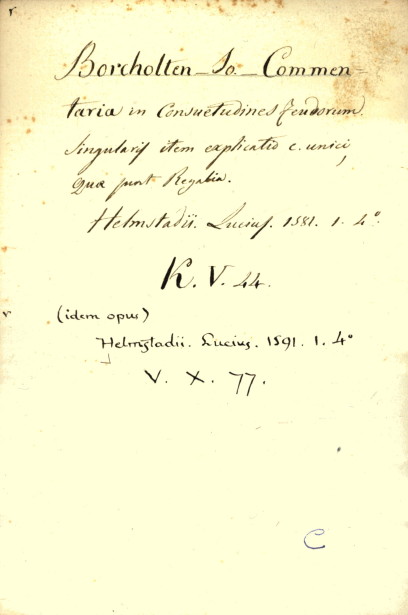 Borcholten_Io_Commen=
taria in Consuetudines feudorum.
Singularis item explicatio c. unici,
Quæ sunt Regalia.
Helmstadii. Lucius. 1581. 1. 4°.
K. V. 44.
(idem opus)
Helmstadii. Lucius. 1591. 1. 4°
V. X. 77.
C